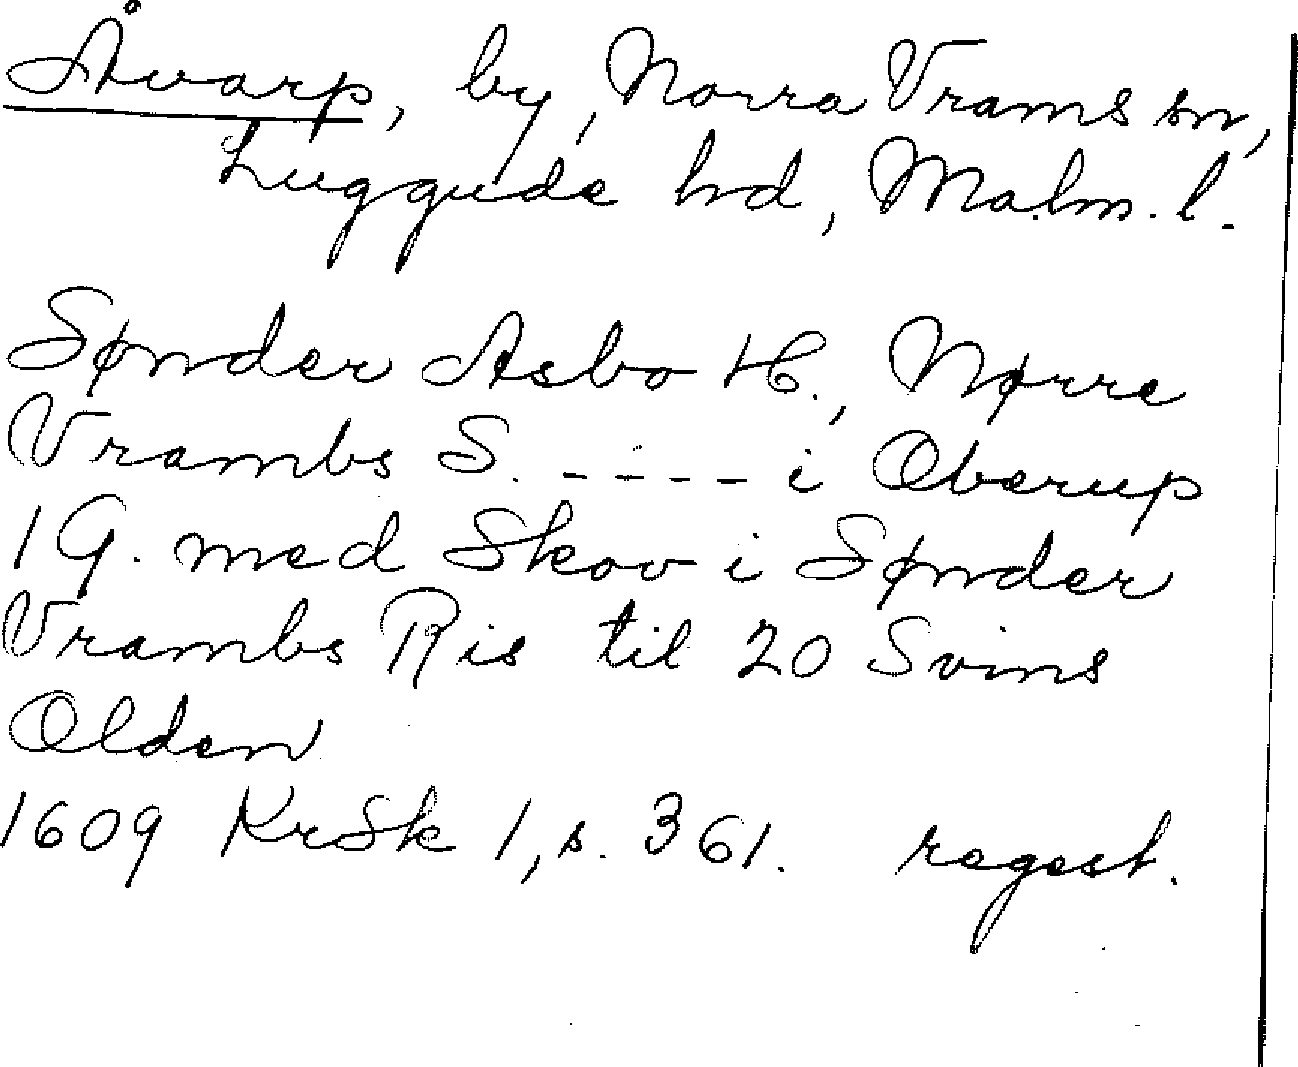 Åvarp, by, Norra Vrams sn,
Luggude hd, Malm. l.
Sønder Asbo H., Nørre
Vrambs S. ----- i Oberup
1 G. med Skov i Sønder
Vrambs Ris til 20 Svins
Olden
1609 KrSk 1, s. 361. regest.